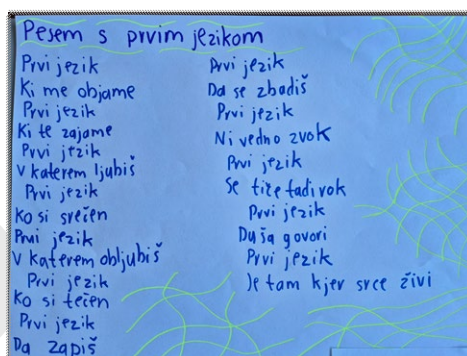 Pesem s prvim jezikom
Prvi jezik
Ki me objame
Prvi jezik
Ki te zajame
Prvi jezik
V katerem ljubiš
Prvi jezik
Ko si srečen
Prvi jezik
V katerem obljubiš
Prvi jezik
Ko si tečen
Prvi jezik
Da zapiš
Prvi jezik
Da se zbadiš
Prvi jezik
Ni vedno zvok
Prvi jezik
Se tiče tadi rok
Prvi jezik
Duša govori
Prvi jezik
Je tam kjer srce živi